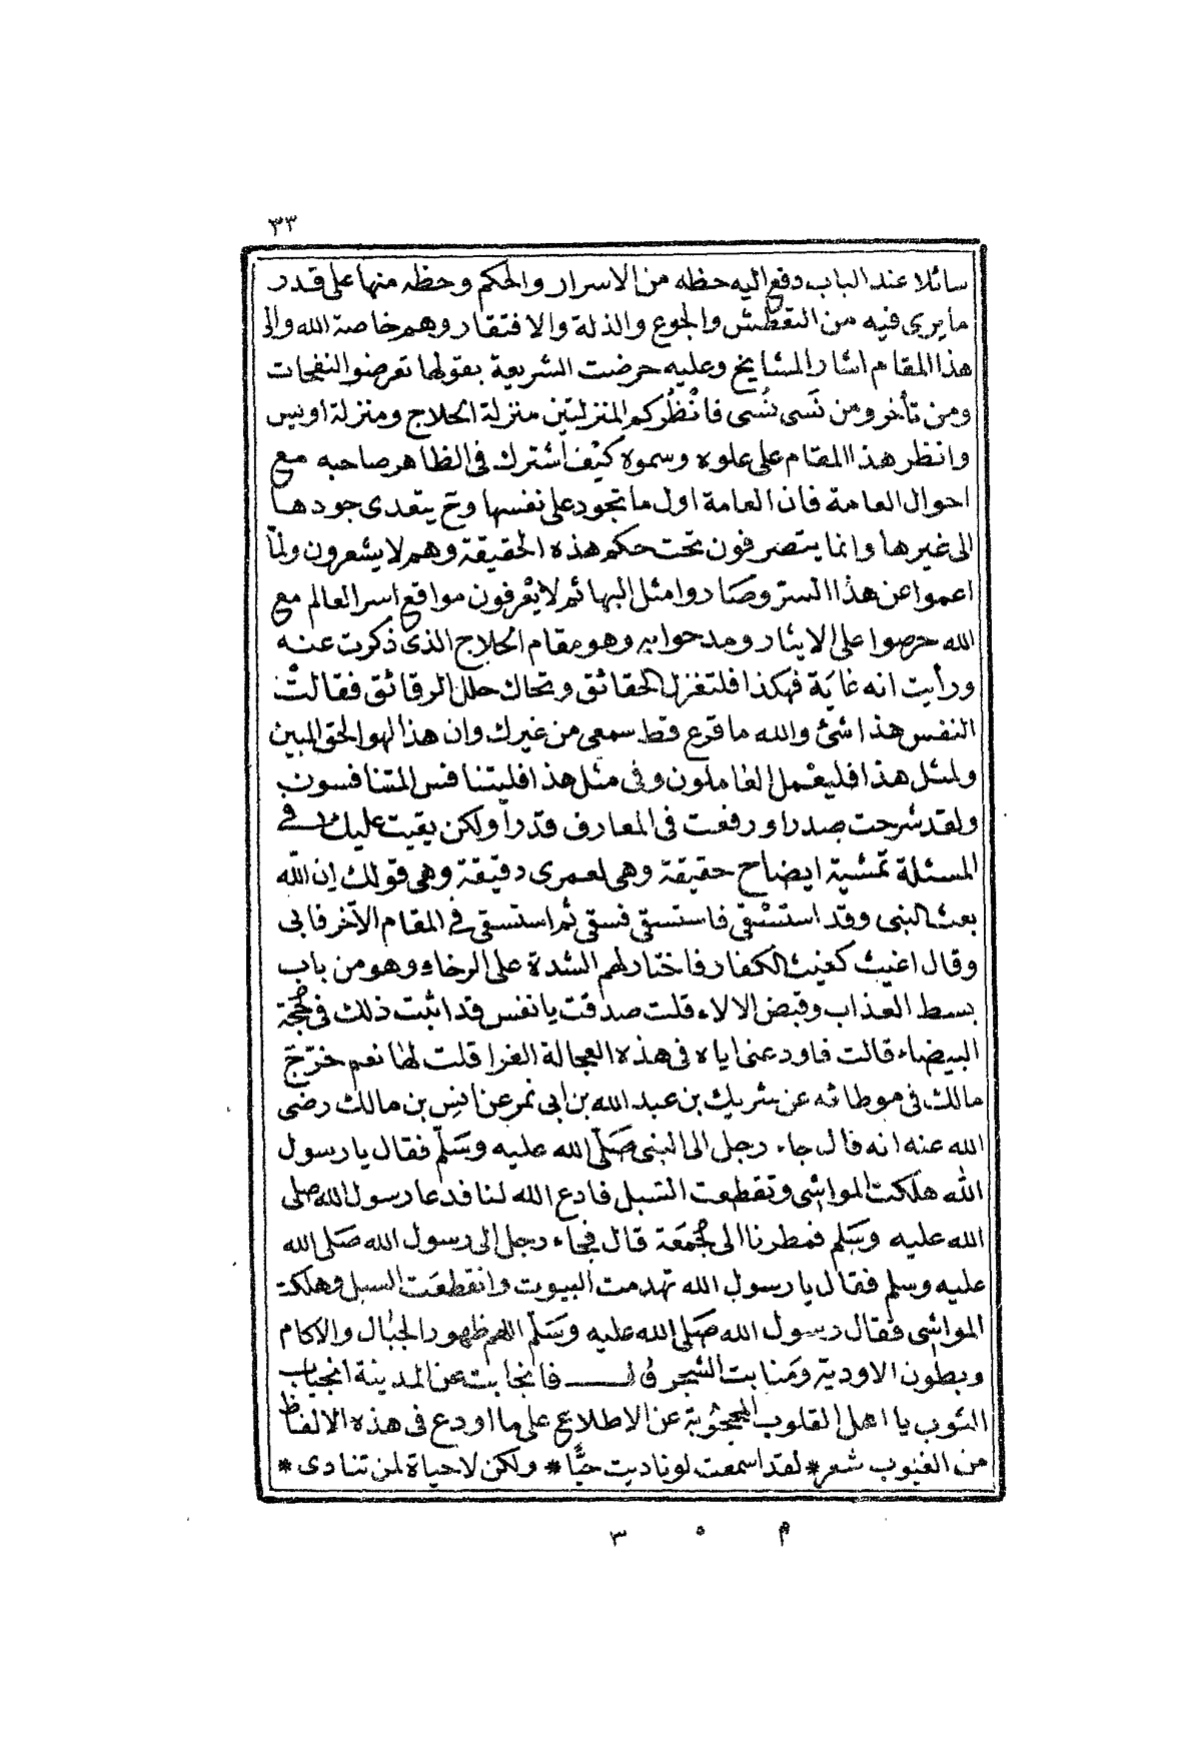 ٣٣
سائلا عند الباب دفع اليه حظه من الاسرار والحكم وحظه منها على قدر
ما يرى فيه من التعطش والجوع والذلة والافتقار وهم خاصة الله والى
هذا المقام اشار المشايخ وعليه حرضت الشريعة بقولها تعرضوا لنفحات
ومن تأخر ومن نَسى نُسى فانْظُر كم المنزلتين منزلة الحلاج ومنزلة اويس
وانظر هذا المقام على علوه وسموه كيْف اشترك فى الظاهر صاحبه مع
احوال العامة فان العامة اول ما تجود على نفسها وح يتعدى جودها
الى غيرها وانما يتصرفون تحت حكم هذه الحقيقة وهم لا يشعرون ولما
اعموا عن هذا السرّ وصَاروا مثل البهائم لا يعْرفون مواقع اسر العالم مع
الله حرصوا على الايثار ومدحوا به وهو مقام الحلاج الذى ذكرت عنه
ورأيت انه غايَة فهكذا فلتغزل الحقائق وتحاك حلل الرقائق فقالت
النفس هذا شئ والله ما قرع قط سمعى من غيرك وان هذا لهو الحق المبين
ولمثل هذا فليعْمل العاملون وفى مثل هذا فليتنافس المتنافسون
ولقد شرحت صدرا ورفعت فى المعارف قدرا ولكن بقيت عليك فى
المسئلة تمشية ايضاح حقيقة وهى لعمرى دقيقة وهى قولك اِن اللّه
بعث النبى وقد استسْقى فاستسقى فسقى ثم استسقى فى المقام الآخر فابى
وقال اغيث كغيث الكفار فاختار لهم الشدة على الرخاء وهو من باب
بسط العذاب وقبض الالاء قلت صدقت يا نفس قد اثبت ذلك فى حجة
البيضاء قالت فاودعنى اياه فى هذه العجالة الغرا قلت لها نعم خرّجَ
مالك فى موطائه عن شريك بن عبد الله بن ابى نمر عن انس بن مالك رضى
الله عنه انه قال جاء رجل الى النبى صَلّى الله عليه وسَلّم فقال يا رسول
اللّه هلكت المواشى وتقطعت السّبل فادع الله لنا فدعا رسول الله صلى
الله عليه وسَلم فمطرنا الى جُمعَة قال فجاء رجل الى رسول الله صَلى الله
عليه وسلم فقال يا رسول الله تهدمت البيوت وانقطعَت السبل وهلكت
المواشى فقال رسول الله صَلى الله عليه وسَلّم اللهم ظهور الجبال والاكام
وبطون الاودية ومَنابت الشجر قال فانجابت عن المدينة انجياب
الثوب يا اهل القلوب المحجوُبة عن الاطلاع على ما اودع فى هذه الالفاظ
من الغيوب شعر * لقد اسمعت لو ناديت حيًّا * ولكن لا حياة لمن تنادى *
م ٥ ٣